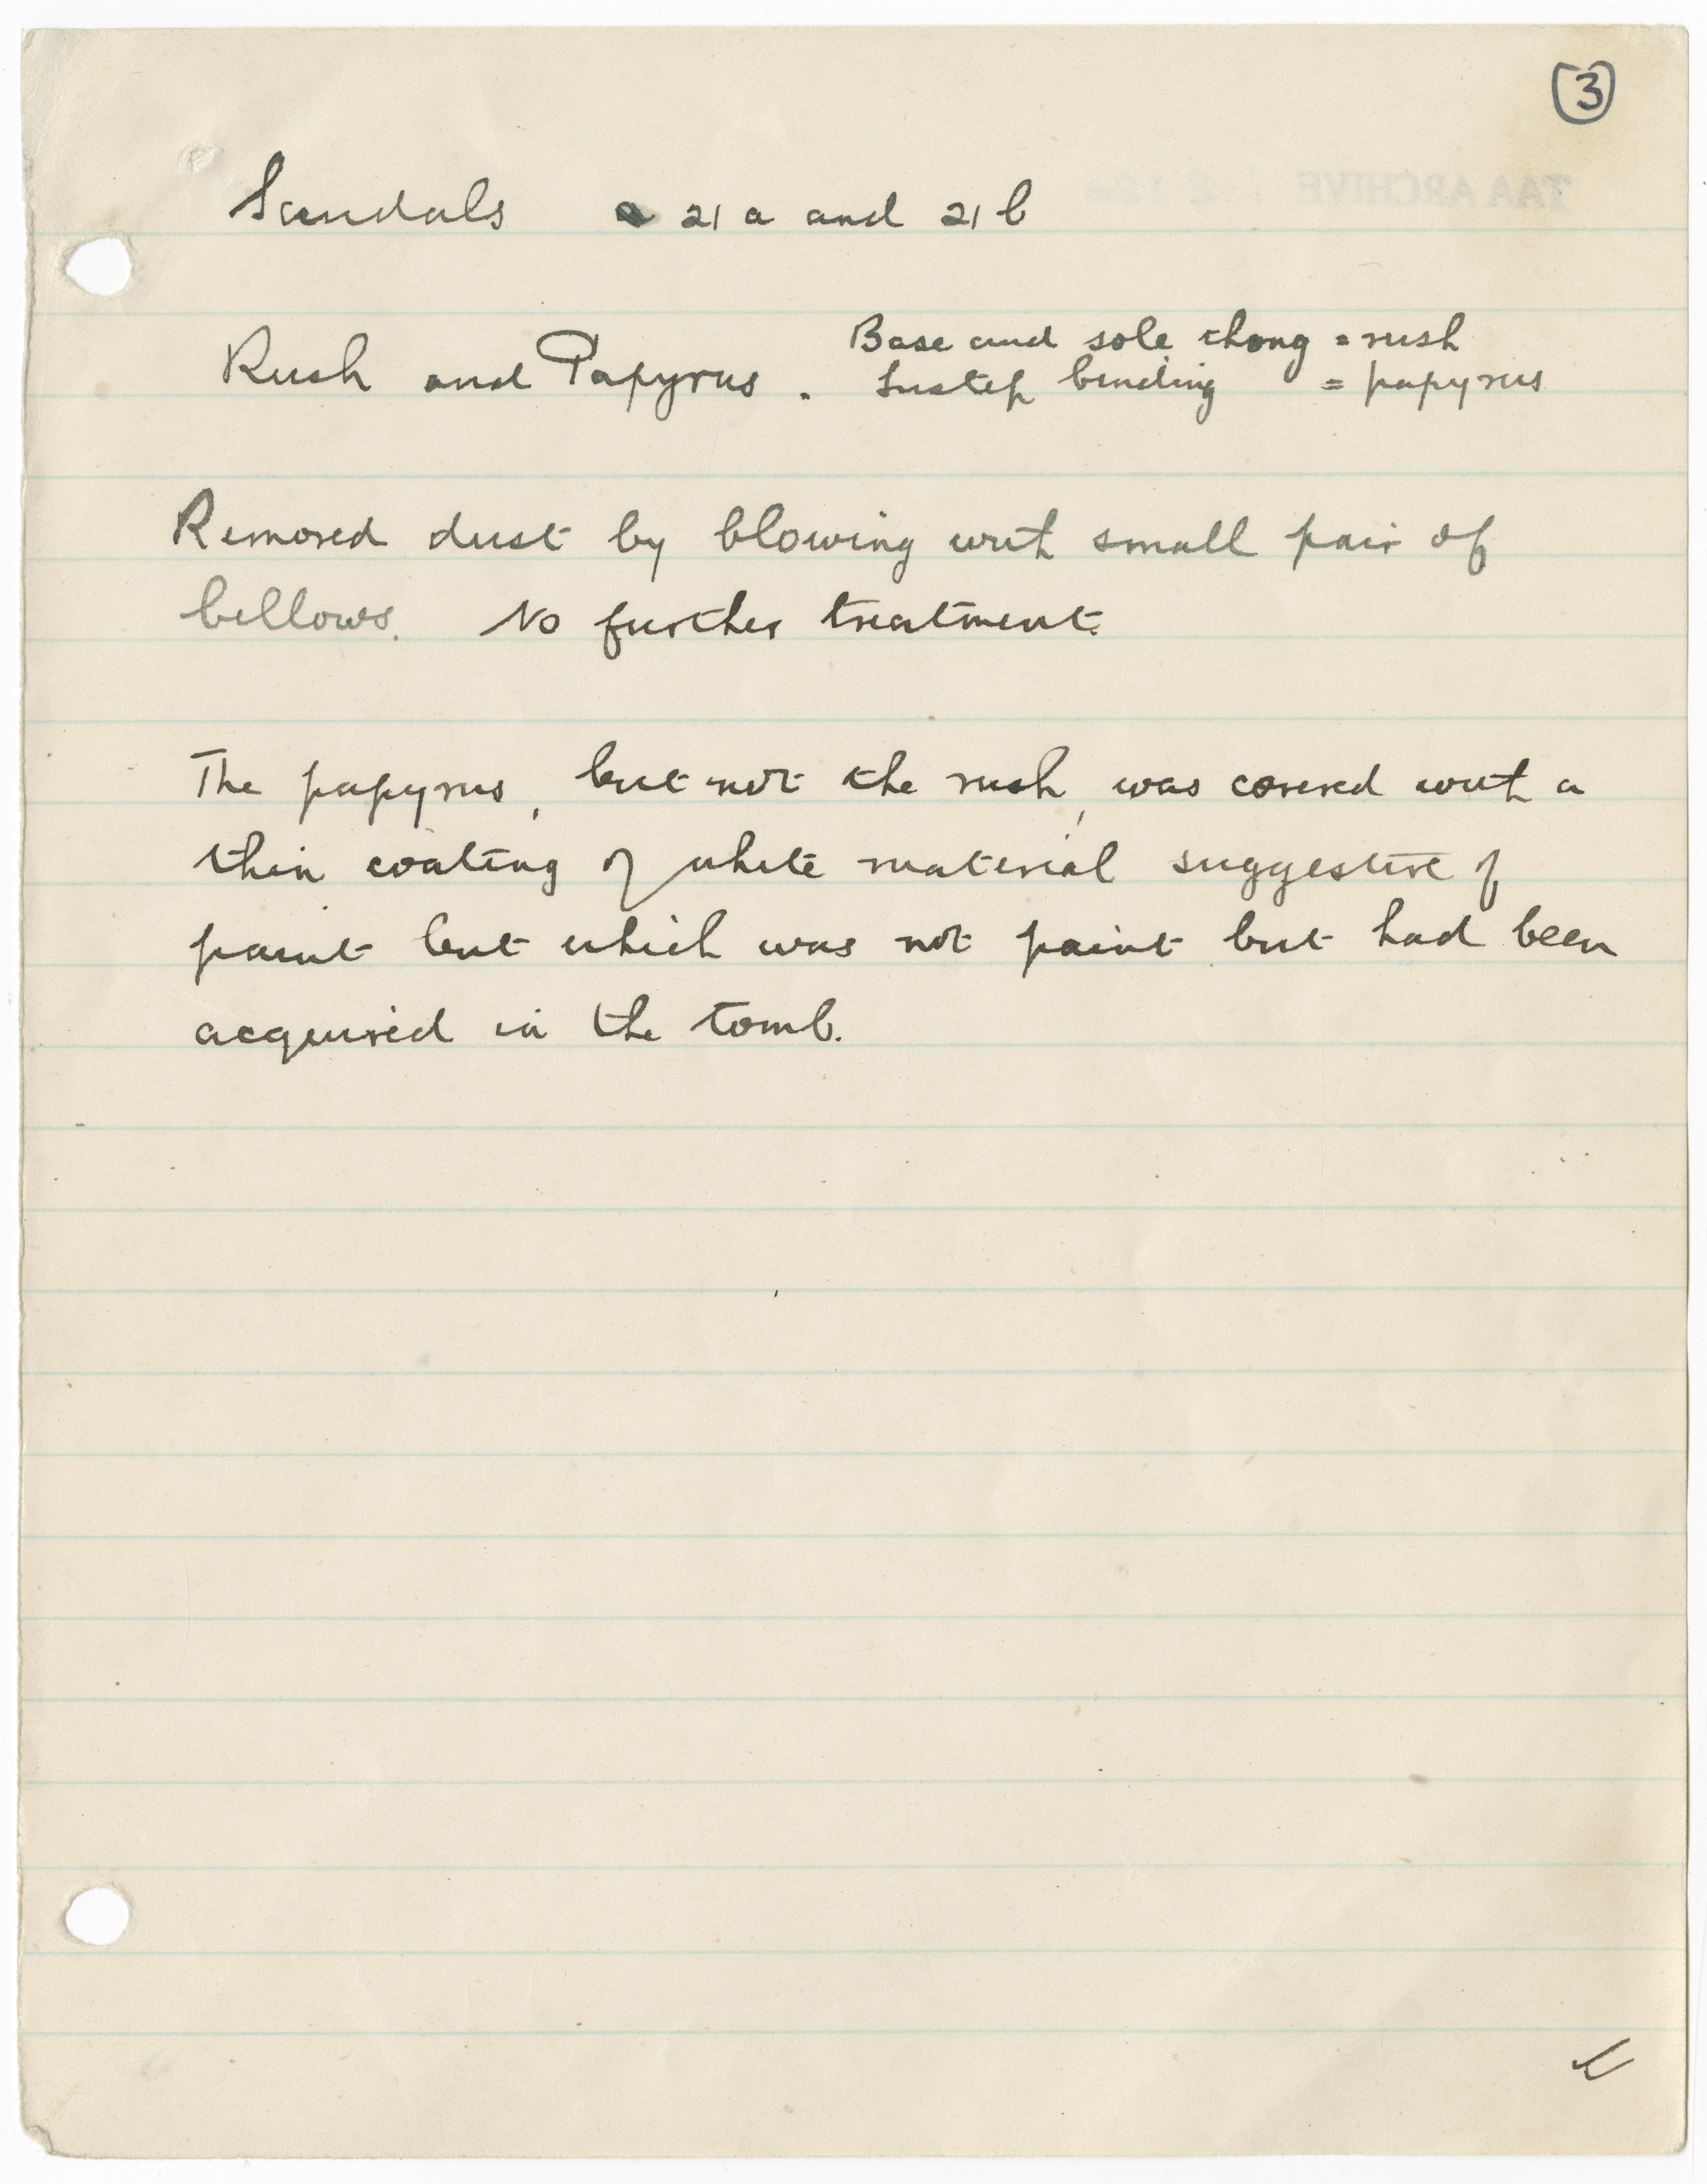 3
Sandals 21 a and 21 b
Base and sole thong = rush
Rush and Papyrus. Instep binding = papyrus
Removed dust by blowing with small pair of
bellows. No further treatment.
The papyrus, but not the rush, was covered with a
thin coating of white material suggestive of
paint but which was not paint but had been
acquired in the tomb.
TAA ARCHIVE